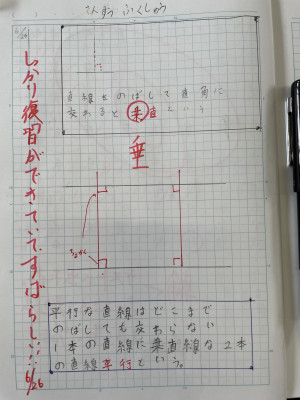 さんすうふくしゅう
6/26
直線をのばして直角に
交わると垂直という
垂
平行な直線はどこまで
のばしても交わらない
1本の直線に垂直線な2本
の直線平行という。
しっかり復習ができていてすばらしい!!!
6/26